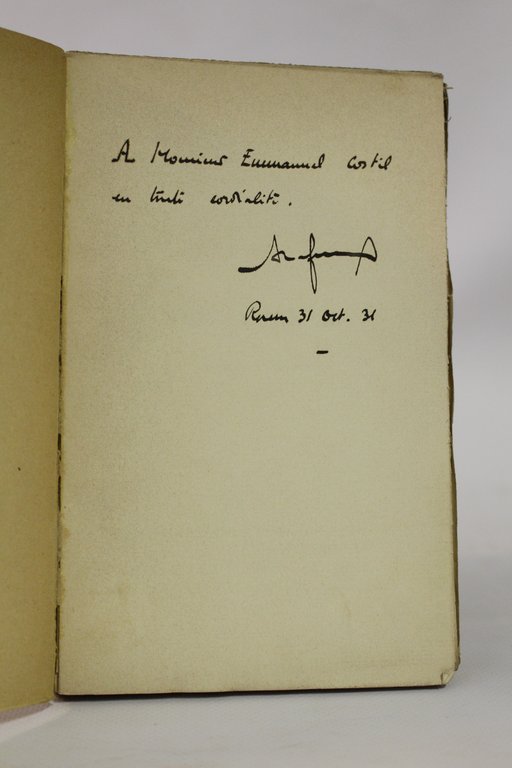 A Monsieur Emmanuel Costil
en toute cordialité.
Rouen 31 Oct. 31